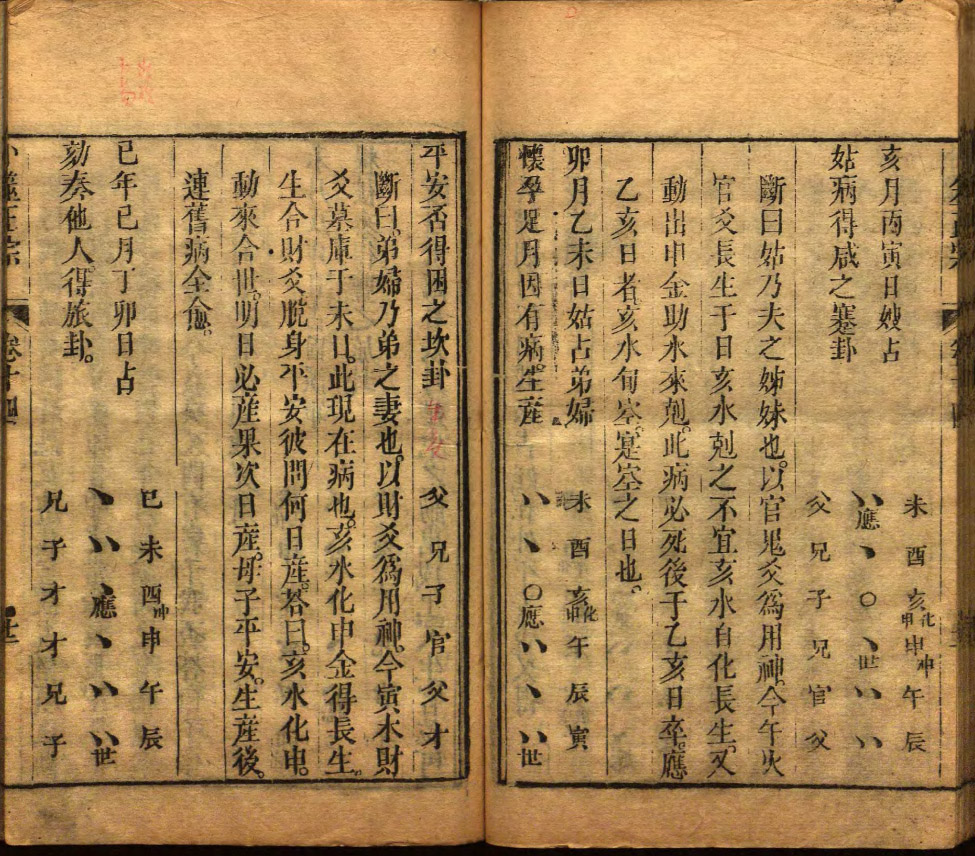 亥月丙寅日嫂占
姑病得咸之蹇卦
未 酉 亥化申 申冲 午 辰
應 世
父 兄 子 兄 官 父
斷曰姑乃夫之姊妹也以官鬼爻為用神今午火
官爻長生于日亥水剋之不宜亥水自化長生又
動出申金助水來剋此病必死後于乙亥日卒應
乙亥日者亥水旬空寔空之日也
卯月乙未日姑占弟婦
懷孕足月因有病生産
未 酉 亥化申 午 辰 寅
〇應 世
平安否得困之坎卦
父 兄 子 官 父 才
斷曰弟婦乃弟之妻也以財爻為用神今寅木財
爻墓庫于未日此現在病也亥水化申金得長生
生合財爻脫身平安彼問何日産荅曰亥水化申
動來合世明日必産果次日産母子平安生産後
連舊病全愈
巳年巳月丁卯日占
劾奏他人得旅卦
巳 未 酉冲 申 午 辰
應 世
兄 子 才 才 兄 子
卷十四